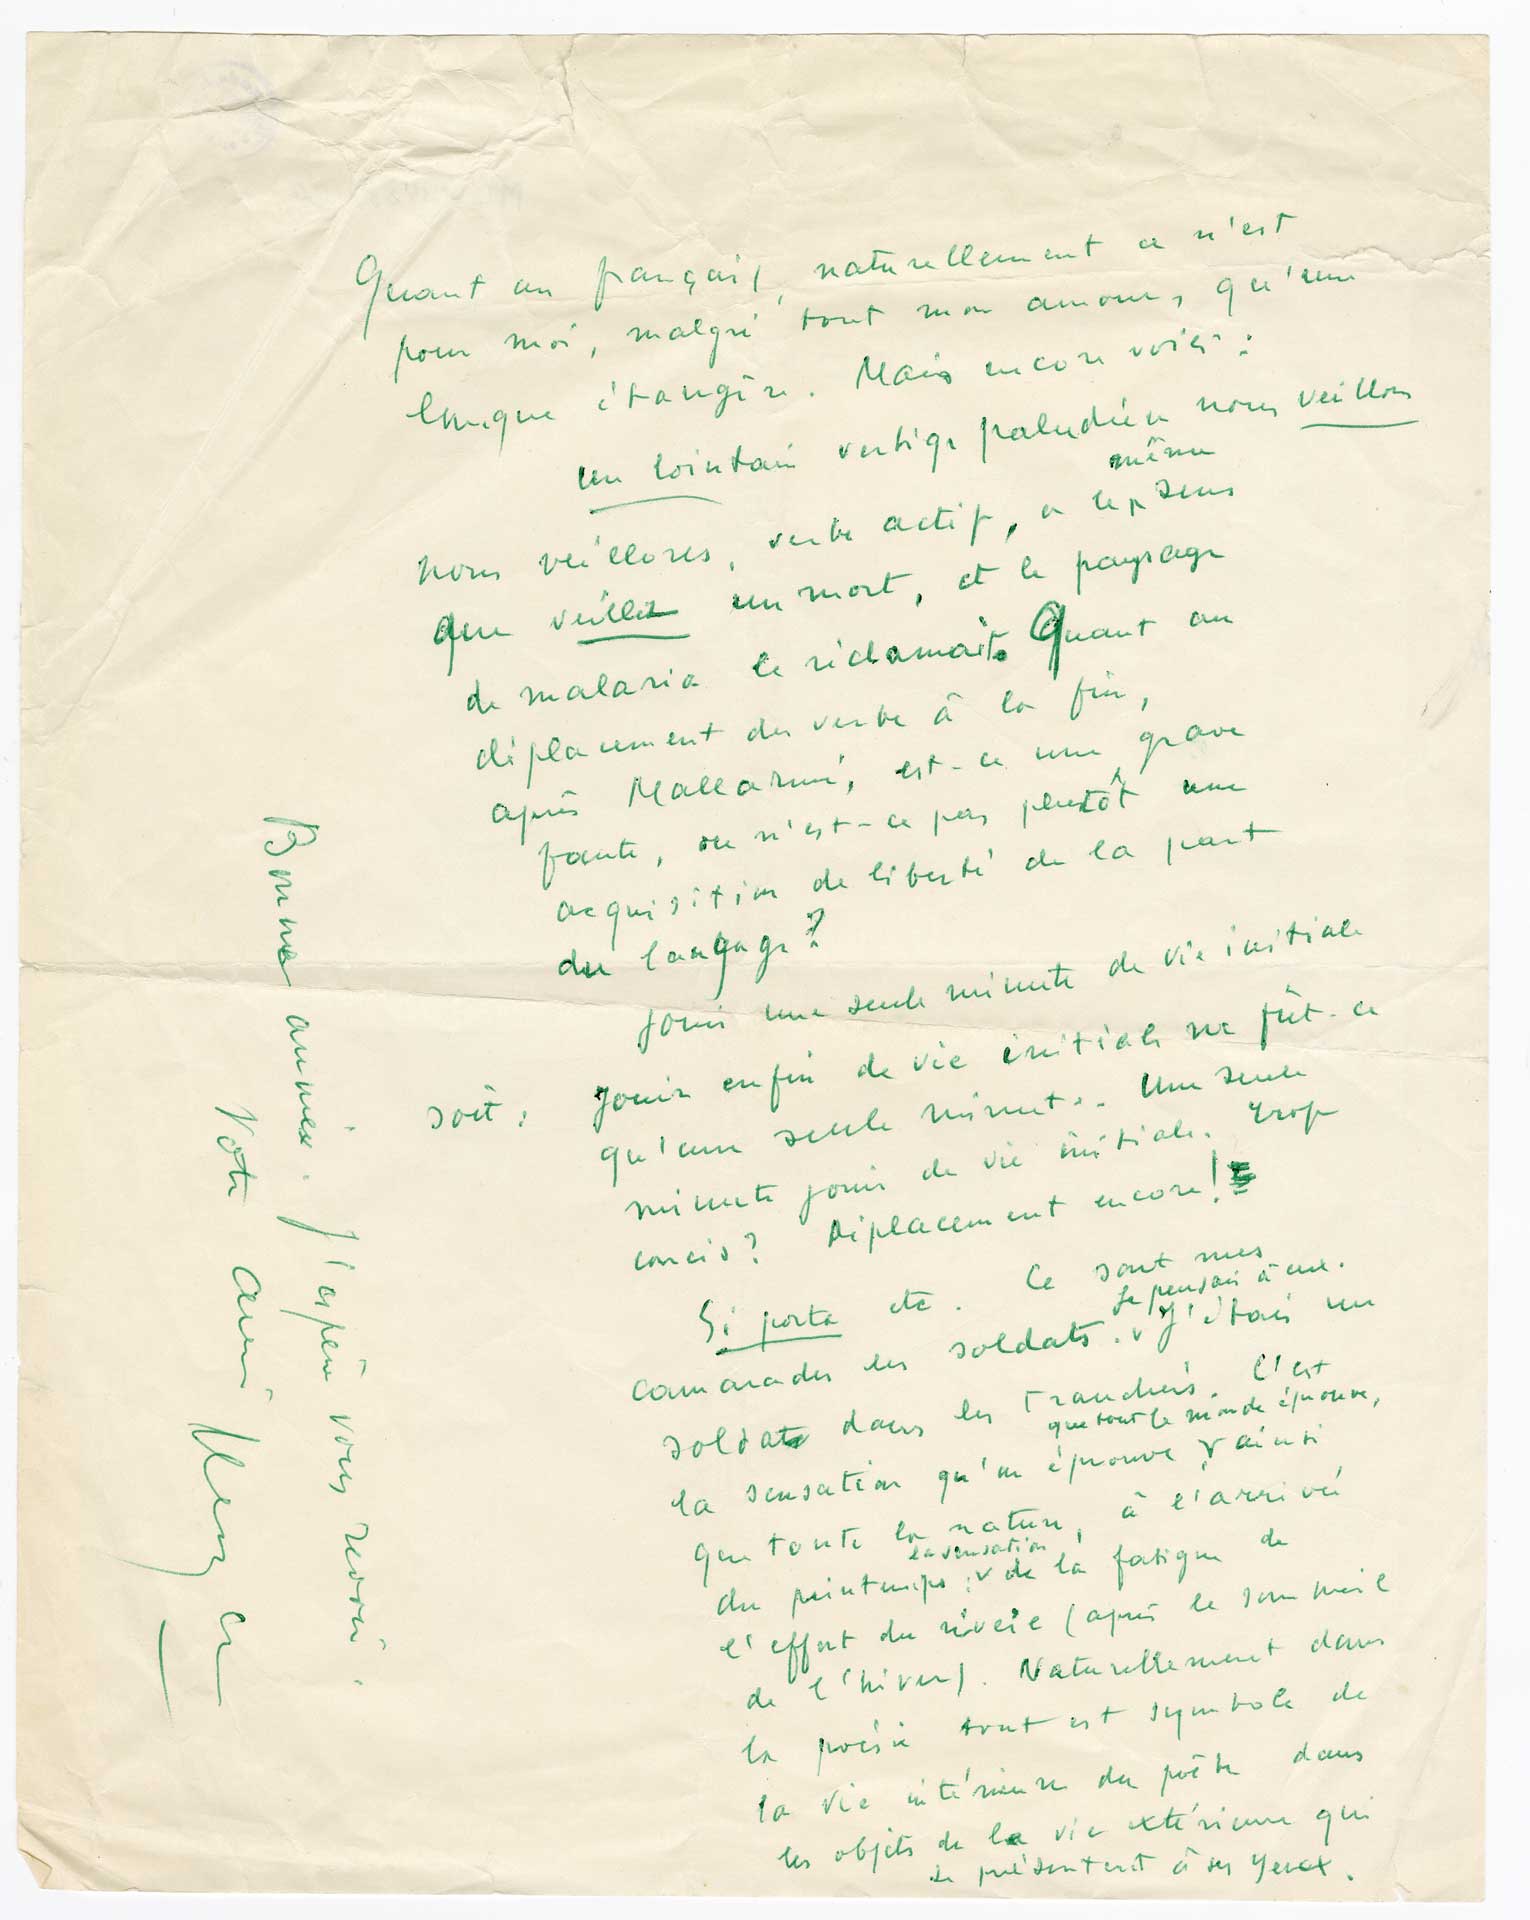 Quant au français, naturellement ce n'est
pour moi, malgré tout mon amour, qu'une
langue étrangère. Mais encore voici :
un lointain vertige paludéen nous veillons
nous veillons, verbe actif, a le même sens
que veiller un mort, et le paysage
de malaria le réclamait. Quant au
déplacement du verbe à la fin,
après Mallarmé, est-ce une grave
faute, ou n'est-ce pas plutôt une
acquisition de liberté de la part
du langage?
Jouir une seule minute de vie initiale
soit : Jouir enfin de vie initiale ne fût-ce
qu'une seule minute. Une seule
minute jouir de vie initiale. Trop
concis? Déplacement encore!
Si porta etc. Ce sont mes
camarades les soldats. Je pensais à eux. J'étais un
soldat dans les tranchées. C'est
la sensation qu'on éprouve, que tout le monde éprouve, ainsi
que toute la nature, à l'arrivée
du printemps : la sensation de la fatigue de
l'effort du réveil (après le sommeil
de l'hiver). Naturellement dans
la poésie tout est symbole de
la vie intérieure du poète dans
les objets de la vie extérieure qui
se présentent à ses yeux.
Bonne année. J'espère vous revoir.
Votre ami